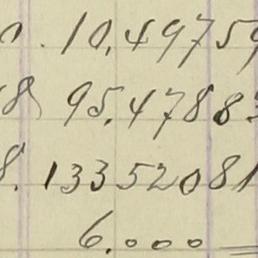 10,49759
8 95.47883
8. 13352081
6.000